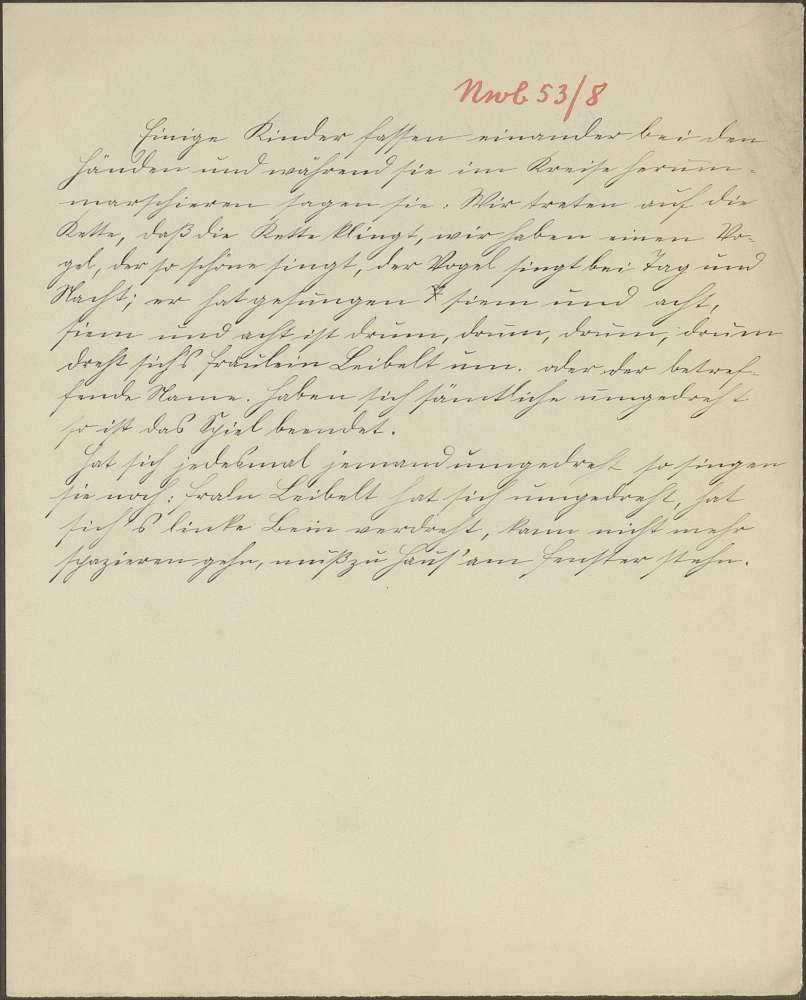 Nwb 53/8
Einige Kinder fassen einander bei den
Händen und während sie im Kreise herum-
marschieren sagen sie: Wir treten auf die
Kette, daß die Kette klingt, wir haben einen Vo-
gel, der so schöne singt, der Vogel singt bei Tag und
Nacht; er hat gesungen siem und acht,
siem und acht ist drum, drum, drum, drum
dreht sich's Fräulein Leibelt um. oder der betref-
fende Name. Haben sich sämtliche umgedreht
so ist das Spiel beendet.
Hat sich jedesmal jemand umgedreht so singen
sie noch: Fraln Leibelt hat sich umgedreht, hat
sich's linke Bein verdreht, kann nicht mehr
spazieren gehn, muß zu Haus' am Fenster stehn.